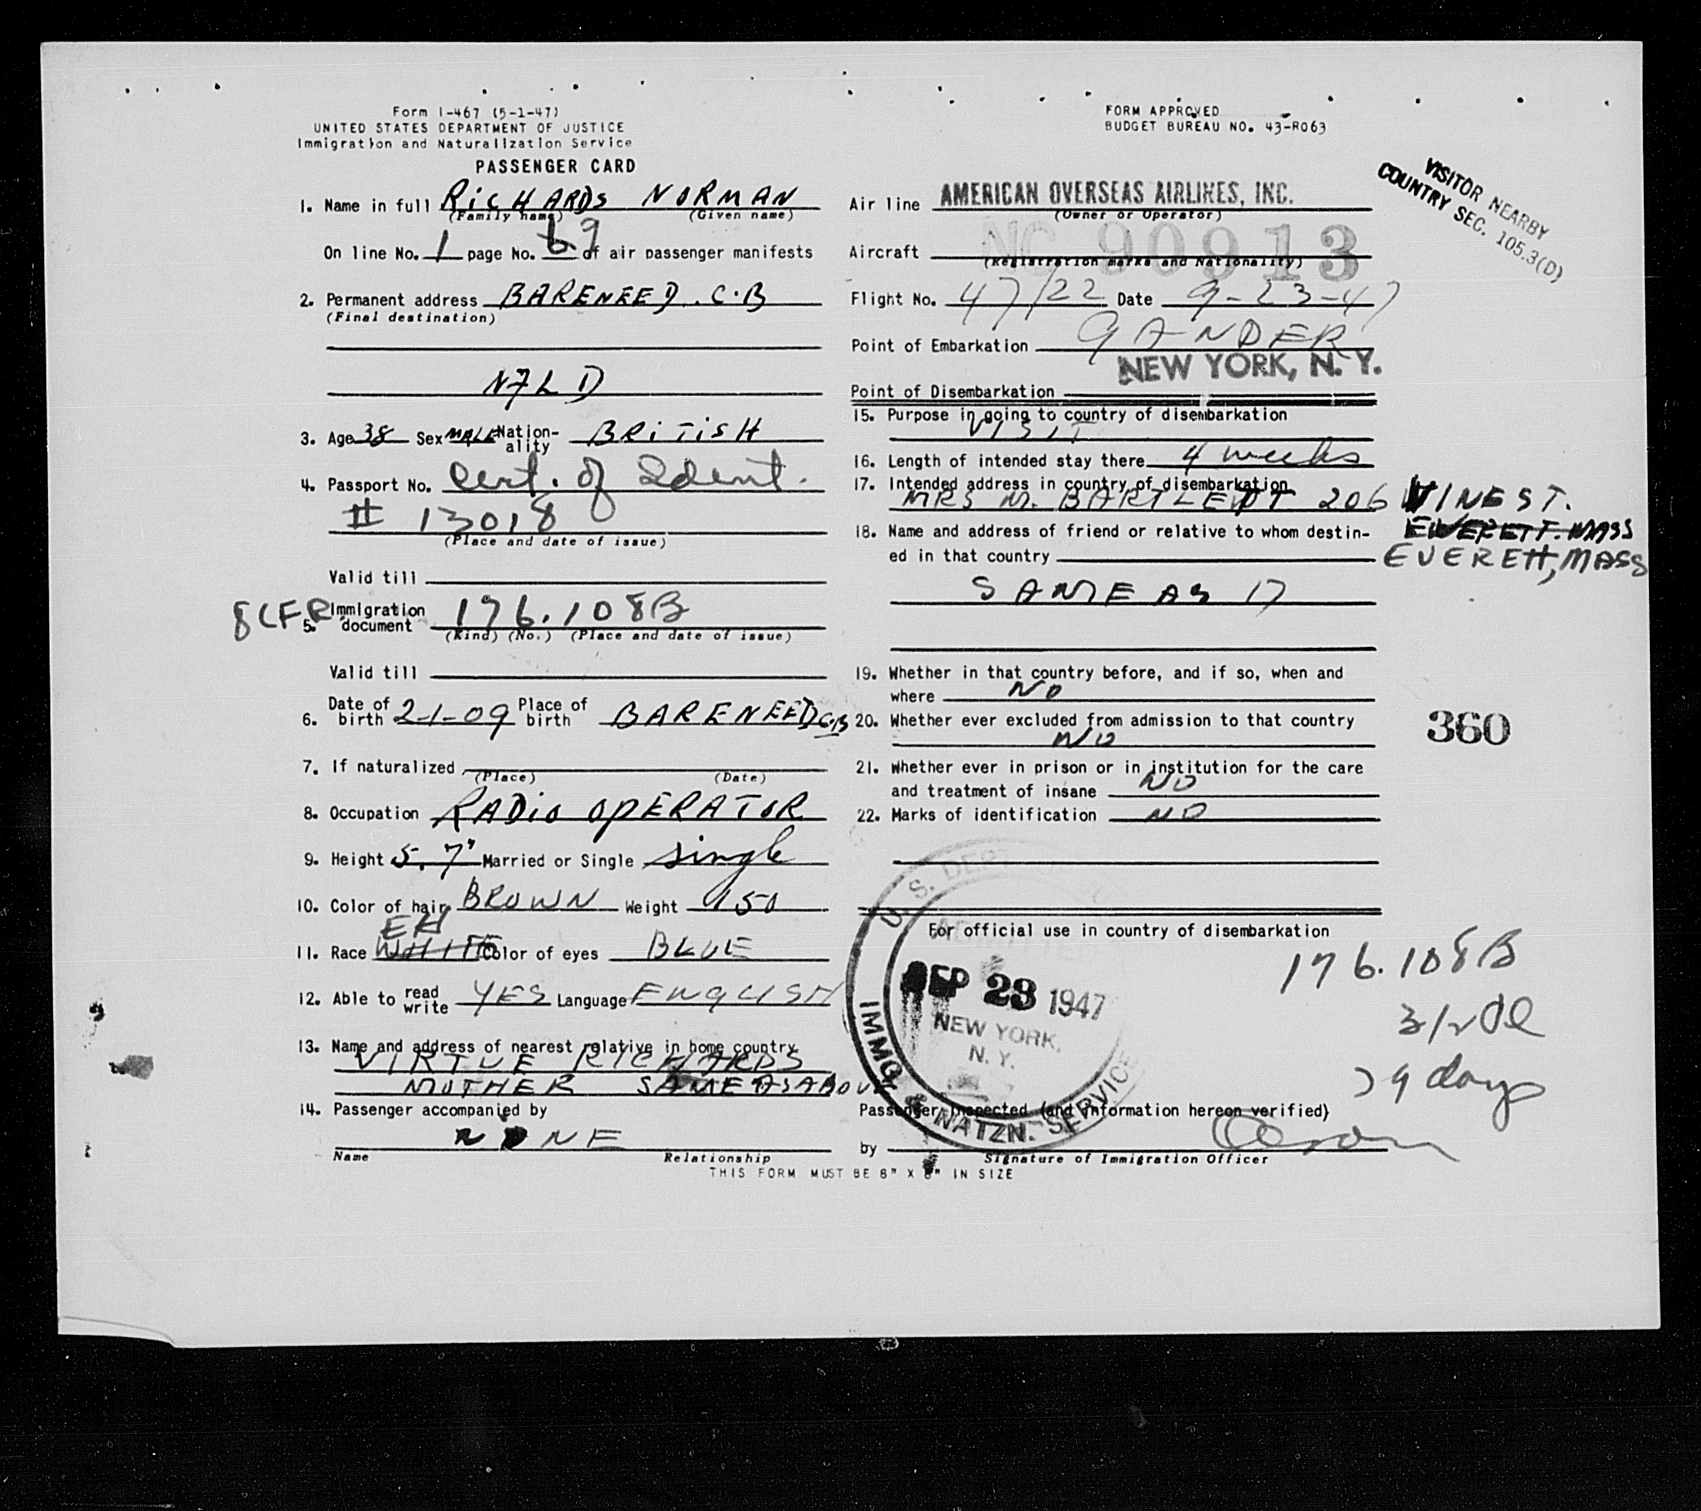 Form I-467 (5-1-47)
UNITED STATES DEPARTMENT OF JUSTICE
Immigration and Naturalization Service
PASSENGER CARD
1. Name in full RICHARDS NORMAN
(Family name) (Given name)
On line No. 1 page No. 69 of air passenger manifests
2. Permanent address BARENEED. C.B
(Final destination)
NFLD
3. Age 38 Sex MALE Nation-ality BRITISH
4. Passport No. Cert. of Ident.
# 13018
(Place and date of issue)
Valid till
8CFR
5. Immigration document 176.108B
(Kind) (No.) (Place and date of issue)
Valid till
6. Date of birth 2-1-09 Place of birth BARENEED C.B
7. If naturalized
(Place) (Date)
8. Occupation RADIO OPERATOR
9. Height 5.7" Married or Single single
10. Color of hair BROWN Weight 150
EH
11. Race WHITE Color of eyes BLUE
12. Able to read write YES Language ENGLISH
13. Name and address of nearest relative in home country
VIRTUE RICHARDS
MOTHER SAME AS ABOVE
14. Passenger accompanied by
NONE
Name Relationship
FORM APPROVED
BUDGET BUREAU NO. 43-R063
VISITOR NEARBY
COUNTRY SEC. 105.3(D)
Air line AMERICAN OVERSEAS AIRLINES, INC.
(Owner or Operator)
Aircraft NC 90913
(Registration marks and Nationality)
Flight No. 47/22 Date 9-23-47
Point of Embarkation GANDER
NEW YORK, N. Y.
Point of Disembarkation
15. Purpose in going to country of disembarkation
VISIT
16. Length of intended stay there 4 weeks
17. Intended address in country of disembarkation
MRS M. BARTLETT 206 VINE ST.
EVERETT. MASS
18. Name and address of friend or relative to whom destin-
ed in that country EVERETT, MASS
SAME AS 17
19. Whether in that country before, and if so, when and
where NO
20. Whether ever excluded from admission to that country
NO
360
21. Whether ever in prison or in institution for the care
and treatment of insane NO
22. Marks of identification NO
For official use in country of disembarkation
U. S. DEPT
ADMITTED
SEP 23 1947
NEW YORK,
N. Y.
IMMG. & NATZN. SERVICE
176.108B
29 days
Passenger inspected (and information hereon verified)
by
Signature of Immigration Officer
THIS FORM MUST BE 8" X 8" IN SIZE